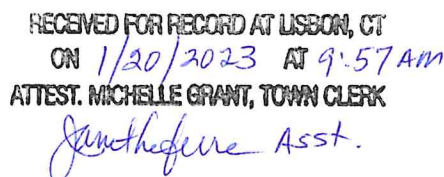 RECEIVED FOR RECORD AT LISBON, CT
ON 1/20/2023 AT 9:57 AM
ATTEST. MICHELLE GRANT, TOWN CLERK
Asst.